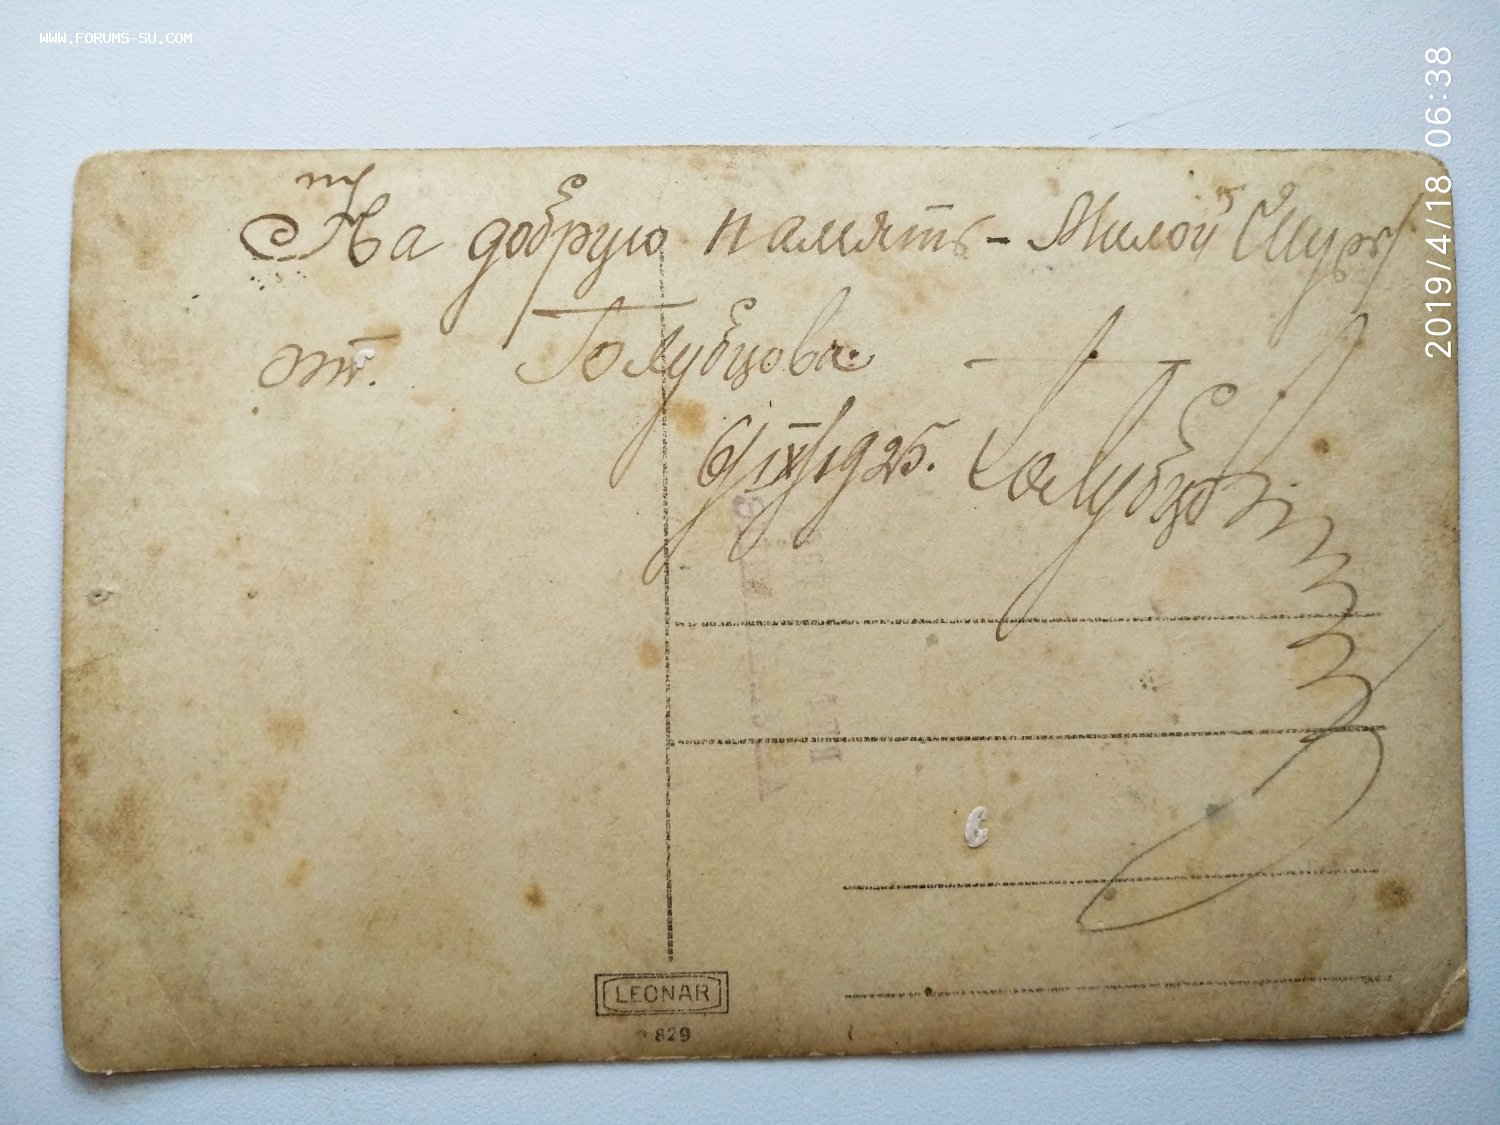 WWW.FORUMS-SU.COM
2019/4/18 06:38
На добрую память - Милой Шуре
от. Голубцова.
6/IX 1925. Голубцов
LEONAR
829